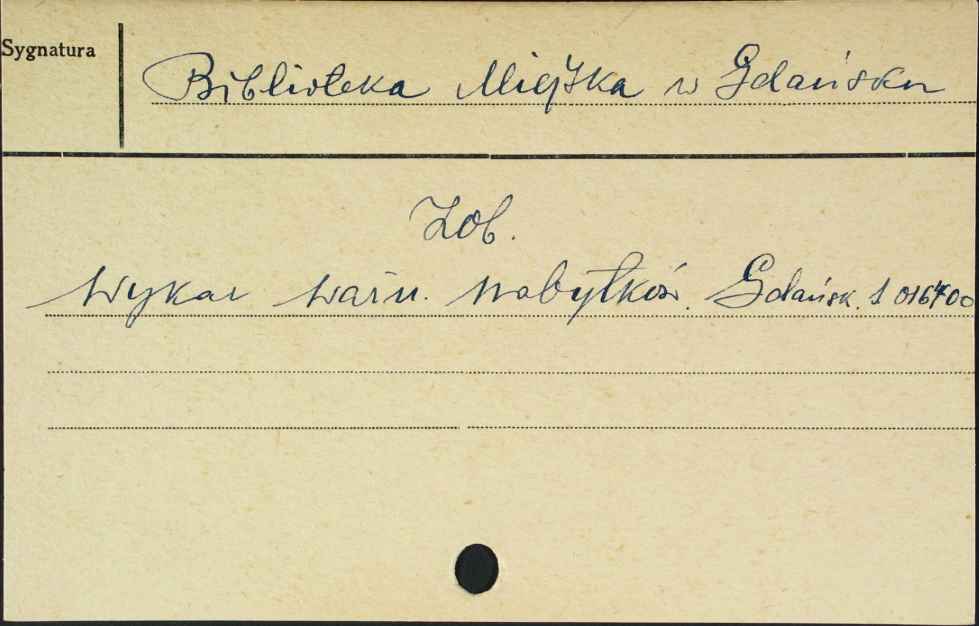 Sygnatura
Biblioteka Miejska w Gdańsku
Zob.
Wykaz ważn. nabytków. Gdańsk. I 016400